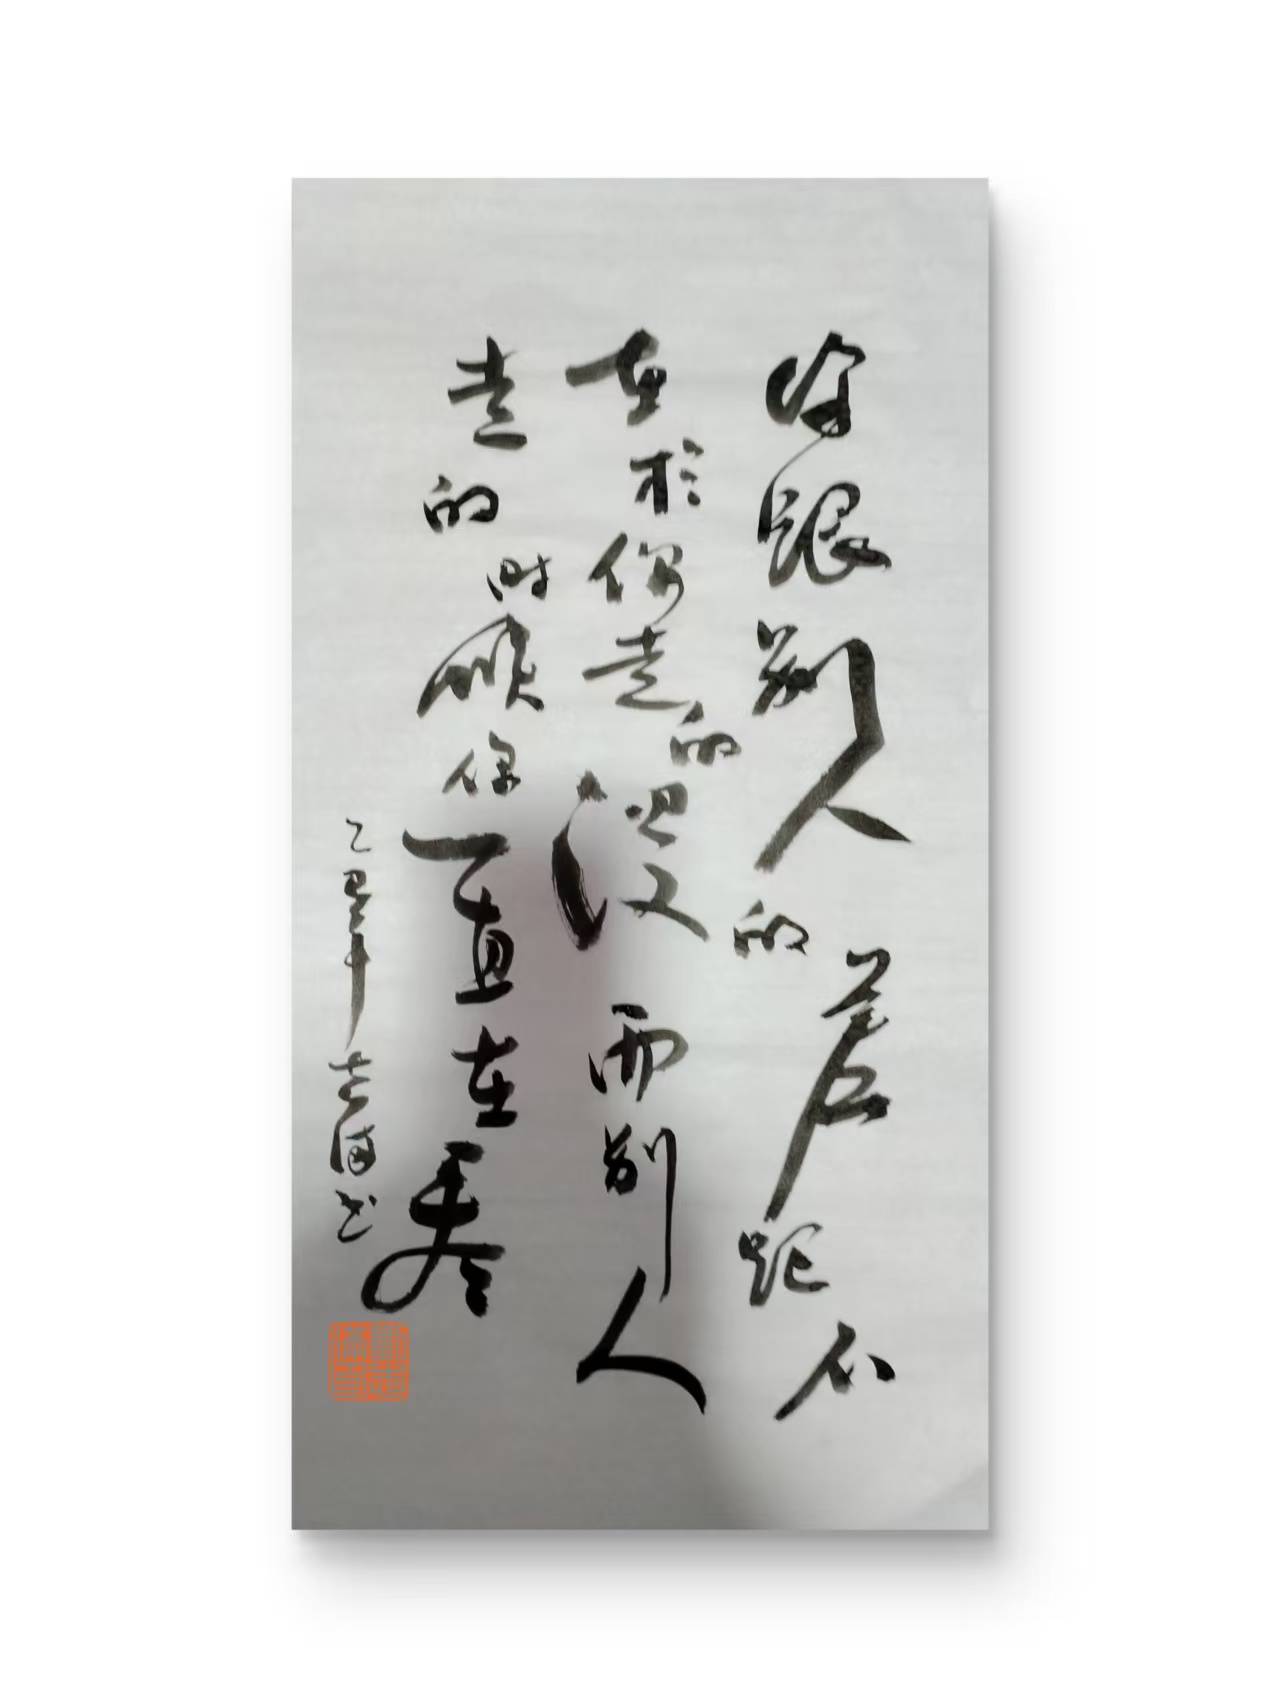 你跟别人的差距不
在於你走的漫而别人
走的时候你一直在
乙巳年 书